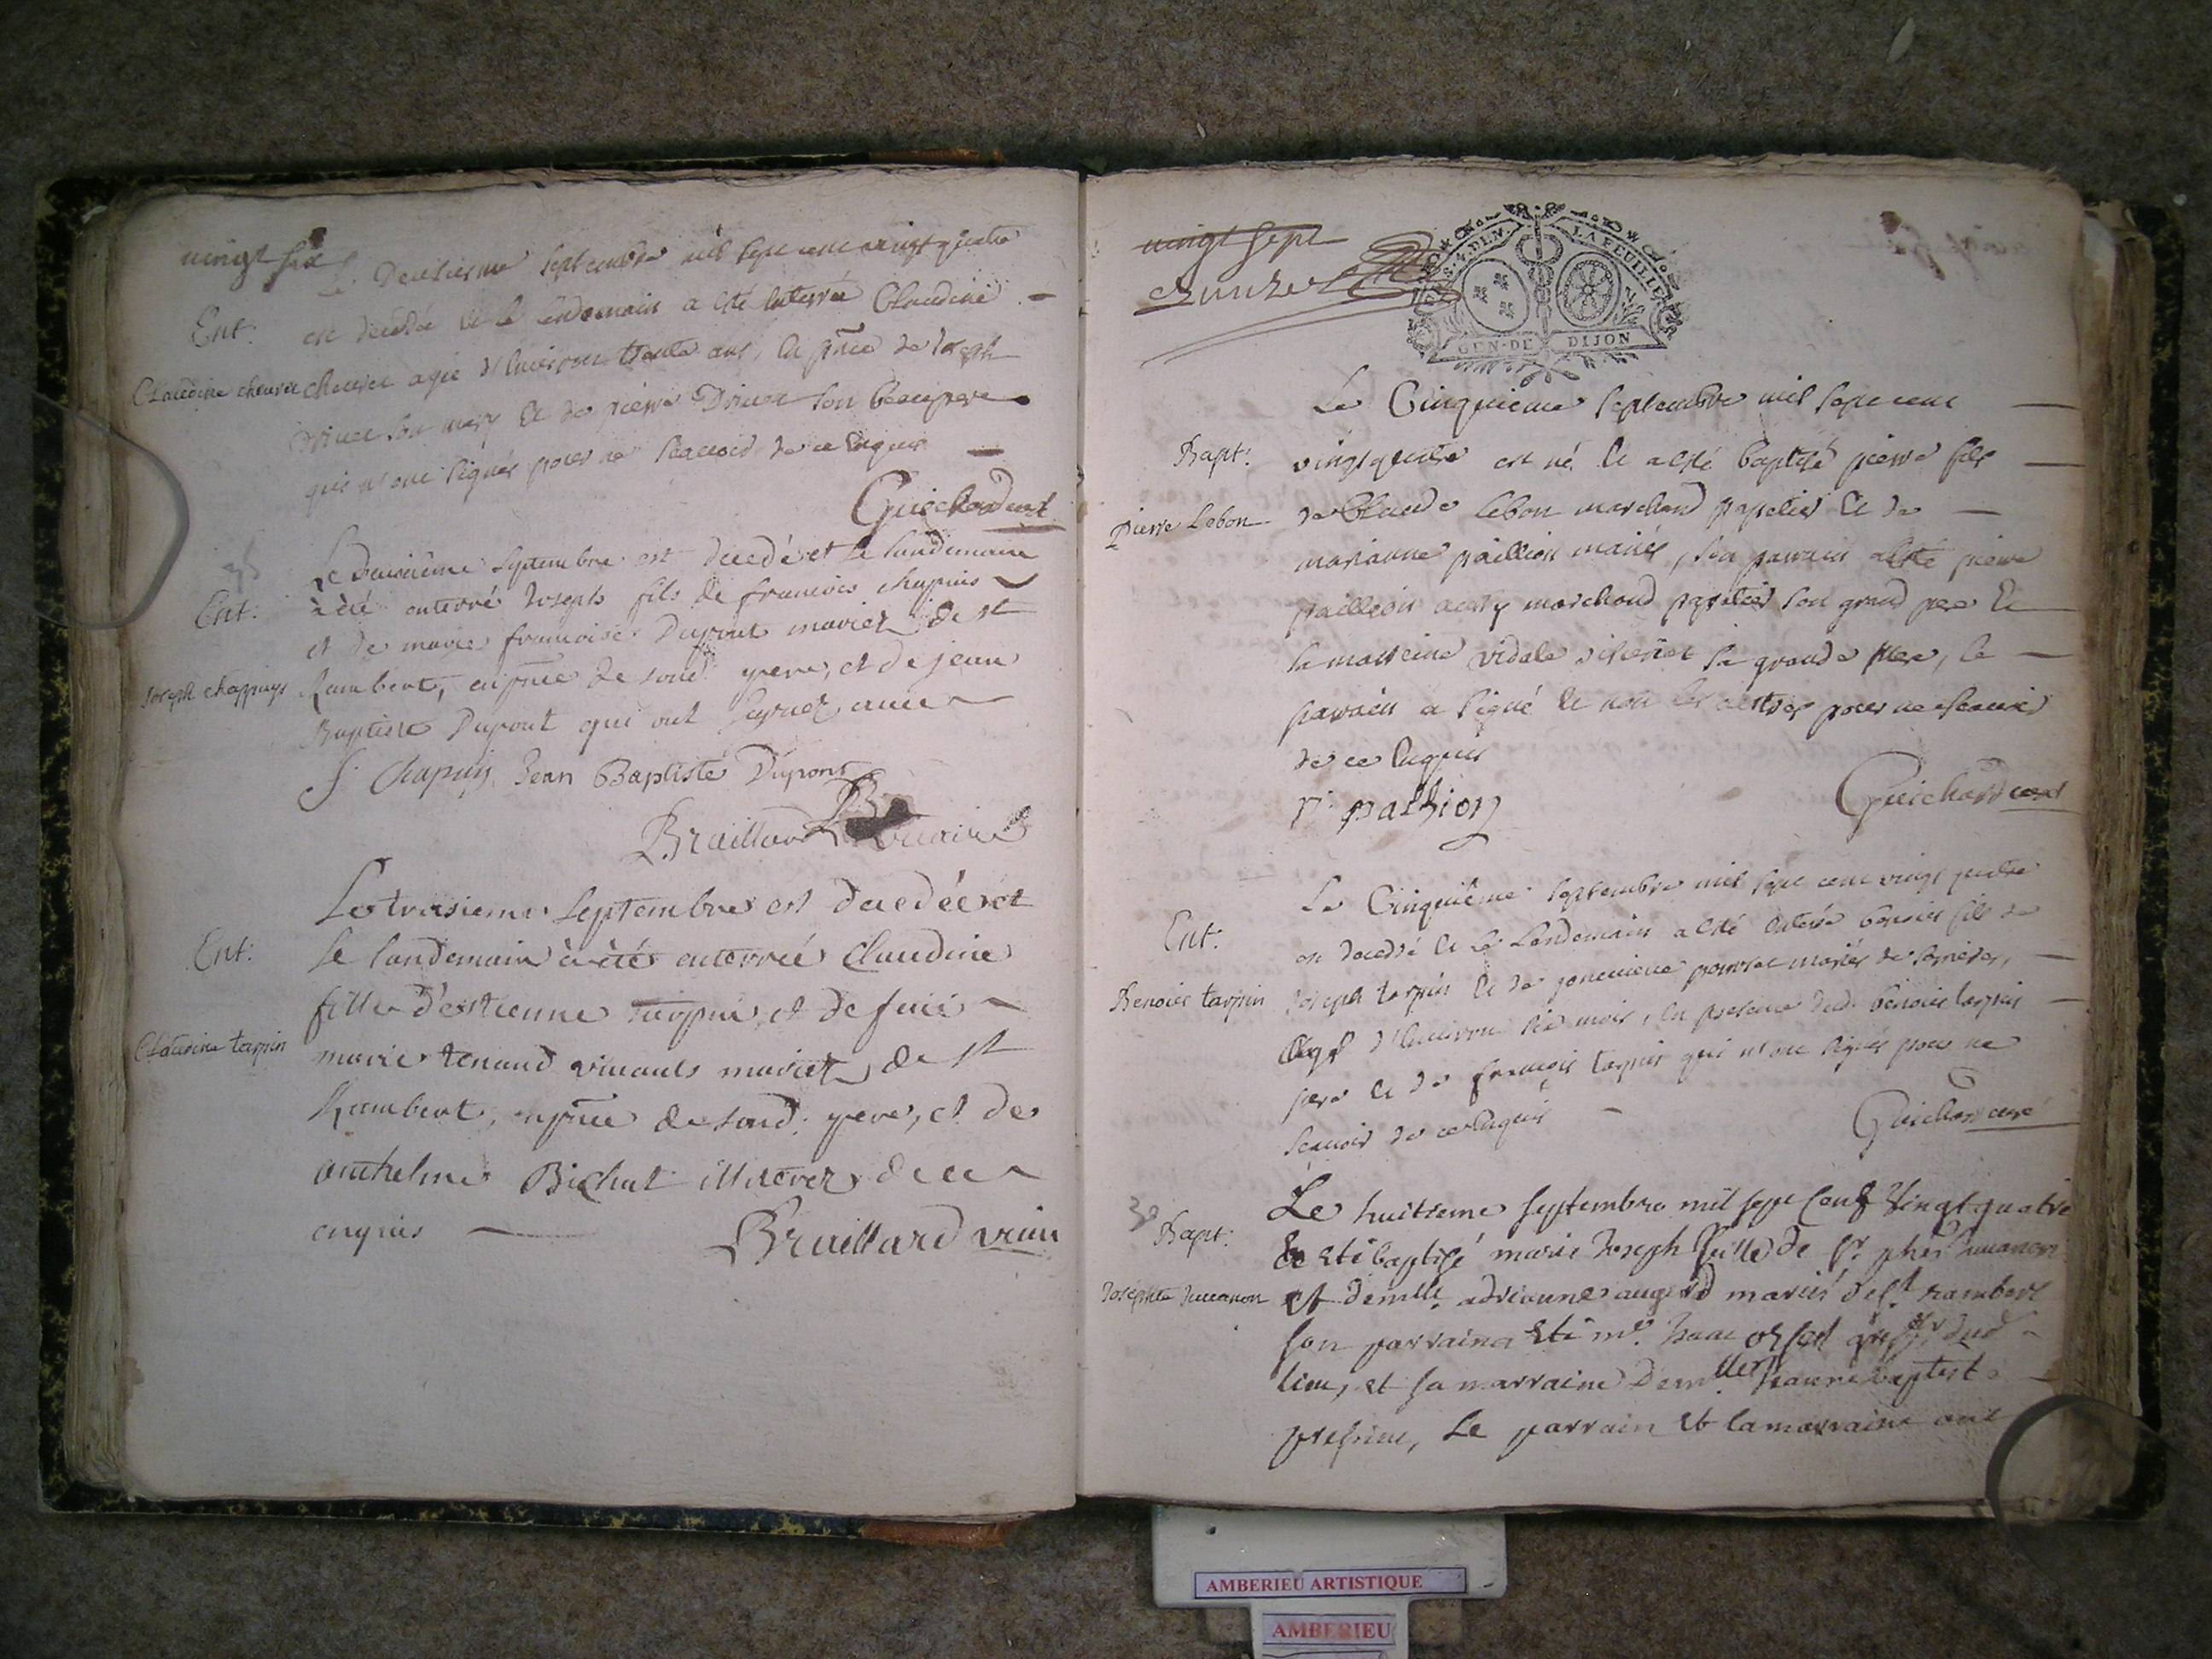 vingt six
Le Deuxieme septembre mil sept cent vingt quatre
Ent: est decedée et le lendemain a esté enterrée Claudine
Claudine chevrer agée d'environ trente ans, en pnce de Joseph
son mary et de pierre son beaupere
qui n'ont signés pour ne scavoir de ce enquis
Guichard curé
Le septembre est decedé et le landemain
Ent: à été enterré Joseph fils de francois chapuis
et de marie francoise Dupont mariez de st
Joseph chappuys Rambert, en pnce de sond: pere, et de jean
Baptiste Dupont qui ont signez avec
f. Chapuy, Jean Baptiste Dupont
Braillard vicaire
Le troisieme Septembre est decedée et
Ent: le landemain à été enterrée Claudine
fille d'estienne tarpin et de feüe
Claudine tarpin marie tenand vivants mariez de st
Rambert, en pnce de sond: pere, et de
anthelme Bichat illiterez de ce
enquis
Braillard vicair
vingt sept
LA FEUILLE
GEN. DE DIJON
Le Cinquieme septembre mil sept cent
Bapt: vingt quatre est né et a esté baptisé pierre fils
Pierre Lebon de Claude lebon marchand papetier et de
marianne paillion mariés, son parrain a esté pierre
paillion aussy marchand papetier son grand pere et
la marreine vidale sa grande mere, le
parrain a signé et non les autres pour ne scavoir
de ce enquis
P. palhion
Guichard curé
Le Cinquieme septembre mil sept cent vingt quatre
Ent: est decedé et le Lendemain a esté enterré benoist fils de
Benoist tarpin Joseph tarpin et de mariés de
Agé d'environ six mois, en presence dud. benoist tarpin
pere et de francois tarpin qui n'ont signés pour ne
scavoir de ce enquis
Guichard curé
Le huitieme septembre mil sept cent vingt quatre
Bapt: a esté baptisé marie Joseph fille de sr. Juvanon
Josephte Juvanon et demlle. adrianne augerd mariés de st. rambert
son parrain a esté mr. Isaac dud
lieu, et sa marraine demlle. jeanne baptiste
Le parrain et la marraine ont
AMBERIEU ARTISTIQUE
AMBERIEU